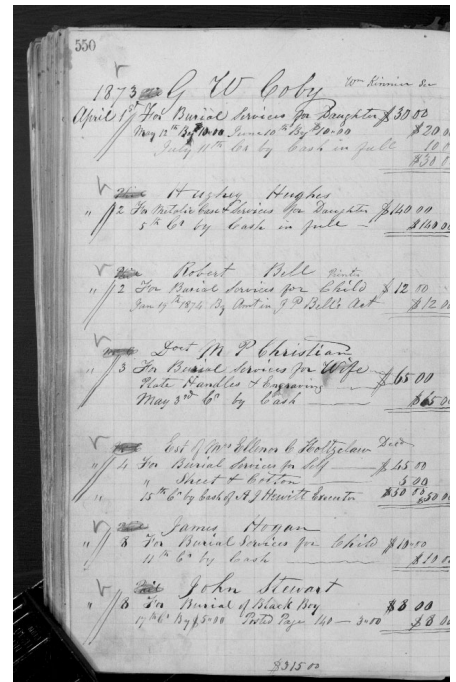 550
1873 G W Coby Wm Kinnier Sec
April 1st For Burial Services for Daughter $30 00
May 12th By $10-00 June 10th By $10-00 $20 0
July 11th Cr by Cash in full 10 0
$30 0
Hughey Hughes
" 2 For Metalic Case & Services for Daughter $140 00
5th Cr by Cash in full — $140 00
Robert Bell
" 2 For Burial Services for Child $12 00
Jan 19th 1874 By Amt in J P Bell's Act $12 0
Doct M P Christian
" 3 For Burial Services for Wife
Plate Handles & Engraving $65 00
May 3rd Cr by Cash $65 0
Est of Mrs Ellenor C Holtzclaw Decd
" 4 For Burial Services for Self $45 00
" Sheet & Cotton 5 00
" 15th Cr by Cash of J Hewitt Executor $50 00 $50 00
James Hogan
" 8 For Burial Services for Child $10-00
11th Cr by Cash $10 0
John Stewart
" 8 For Burial of Black Boy $8 00
17th Cr By $5-00 Posted Page 140 — 3-00 $8 0
$315 00